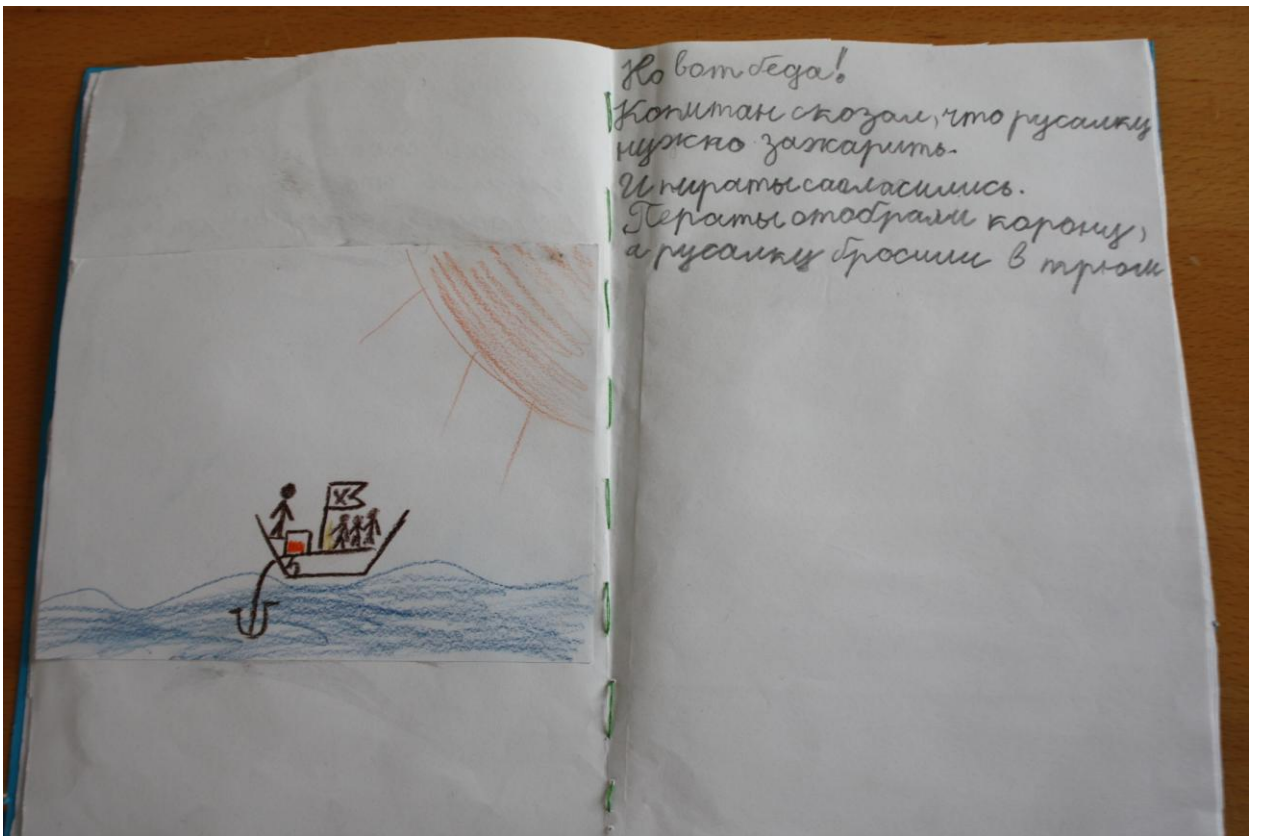 Но вот беда!
Копитан скозал, что русалку
нужно зажарить.
И пираты савласились.
Ператы отобрали корону,
а русалку бросили в трюм